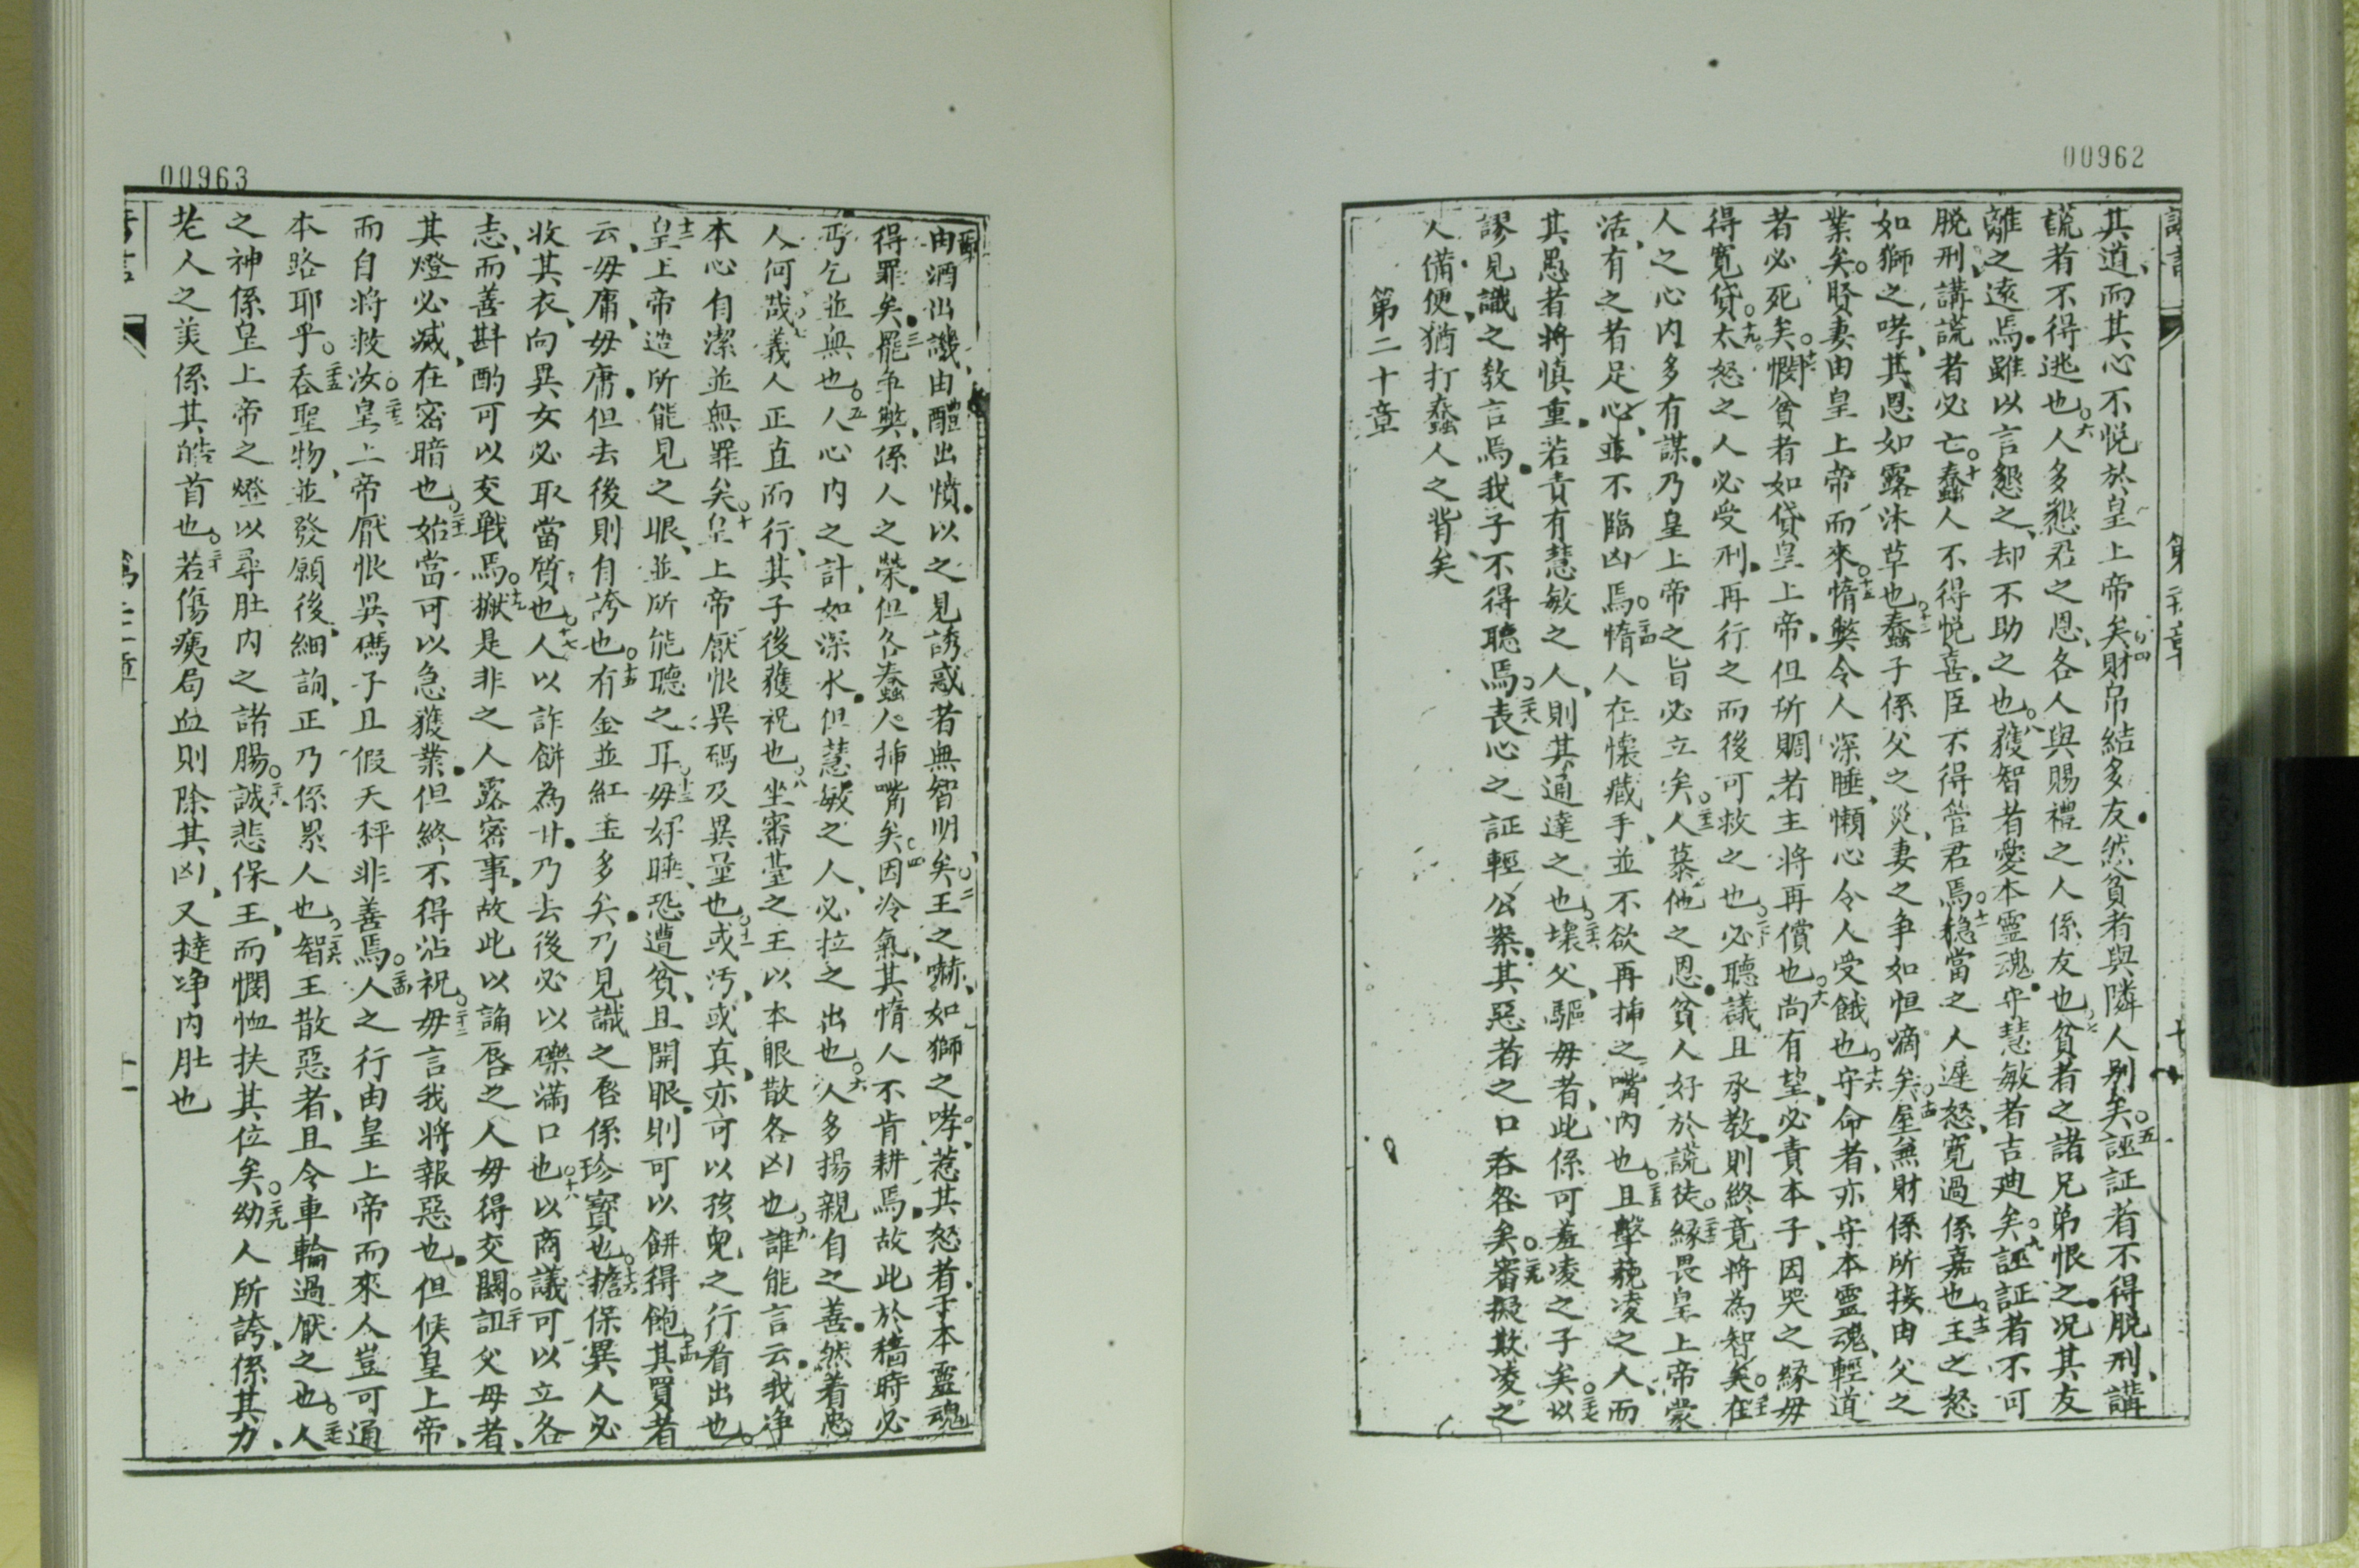 00962
其道、而其心不悅於皇上帝矣○四財帛結多友。然貧者與隣人別矣○五誣証者不得脫刑、講
謊者不得逃也○六人多懇君之恩、各人與賜禮之人係友也○七貧者之諸兄弟恨之。况其友
離之遠焉。雖以言懇之、却不助之也○八獲智者愛本靈魂。守慧敏者吉廸矣○九誣証者不可
脫刑、講謊者必亡○十蠢人不得悅喜、臣不得管君焉○十一穏當之人遲怒、寛過係嘉也○十二王之怒
如獅之哮、其恩如露沐草也○十三蠢子係父之災、妻之争如恒滴矣○十四屋無財係所接由父之
業矣。賢妻由皇上帝而來○十五惰獘令人深睡、懶心令人受餓也○十六守命者、亦守本靈魂、輕道
者必死矣○十七憫貧者如贷皇上帝。但所賙者主將再償也○十八尚有望、必責本子、因哭之縁毋
得寬贷○十九太怒之人必受刑。再行之而後可救之也○二十必聽議且承教。則終竟將為智矣○二十一在
人之心内多有謀。乃皇上帝之旨必立矣○二十二人慕他之恩。貧人好於謊徒○二十三縁畏皇上帝蒙
活、有之者足心、並不臨凶焉○二十四惰人在懷藏手、並不欲再插之嘴内也○二十五且擊藐凌之人、而
其愚者將慎重。若責有慧敏之人、則其通達之也○二十六壞父、驅毋者、此係可羞凌之子矣○二十七以
謬見識之教言焉。我子不得聽焉○二十八丧心之証輕公案。其惡者之口吞咎矣○二十九審擬欺凌之
人備便、猶打蠢人之背矣
第二十章
00963
由酒出譏、由醴出憤。以之見誘惑者無智明矣○二王之嚇、如獅之哮、惹其怒者于本靈魂
得罪矣○三罷争獘、係人之榮。但各蠢人插嘴矣○四因冷氣、其惰人不肯耕焉。故此於穡時必
丐乞並無也○五人心内之計、如深水。但慧敏之人、必拉之出也○六人多揚親自之善。然着忠
人何哉○七義人正直而行、其子後獲祝也○八坐審臺之王以本眼散各凶也○九誰能言云。我净
本心自潔並無罪矣○十皇上帝厭恨異碼及異量也○十一或汚、或真、亦可以孩兒之行看出也○
十二皇上帝造所能見之眼、並所能聽之耳○十三毋好睡、恐遭貧、且開眼。則可以餅得飽○十四其買者
云、毋庸、毋庸。但去後則自誇也○十五有金並紅玉多矣。乃見識之唇係珍寳也○十六擔保異人必
收其衣、向異女必取當質也○十七人以詐餅為甘。乃去後必以礫滿口也○十八以商議可以立各
志、而善斟酌可以交戰焉○十九搬是非之人露密事、故此以諭唇之人毋得交關○二十詛父毋者、
其燈必滅、在密暗也○二十一始當可以急獲業。但終不得沾祝○二十二毋言我將報惡也。但候皇上帝、
而自將救汝○二十三皇上帝厭恨異碼子且假天秤非善焉○二十四人之行由皇上帝而來人豈可通
本路耶乎○二十五吞聖物、並發願後、細詢、正乃係累人也○二十六智王散惡者、且令車輪過厭之也○二十七人
之神係皇上帝之燈以尋肚内之諸腸○二十八誠悲保王、而憫恤扶其位矣○二十九幼人所誇、係其力、
老人之美係其皓首也○三十若傷痍局血則除其凶、又撻净内肚也